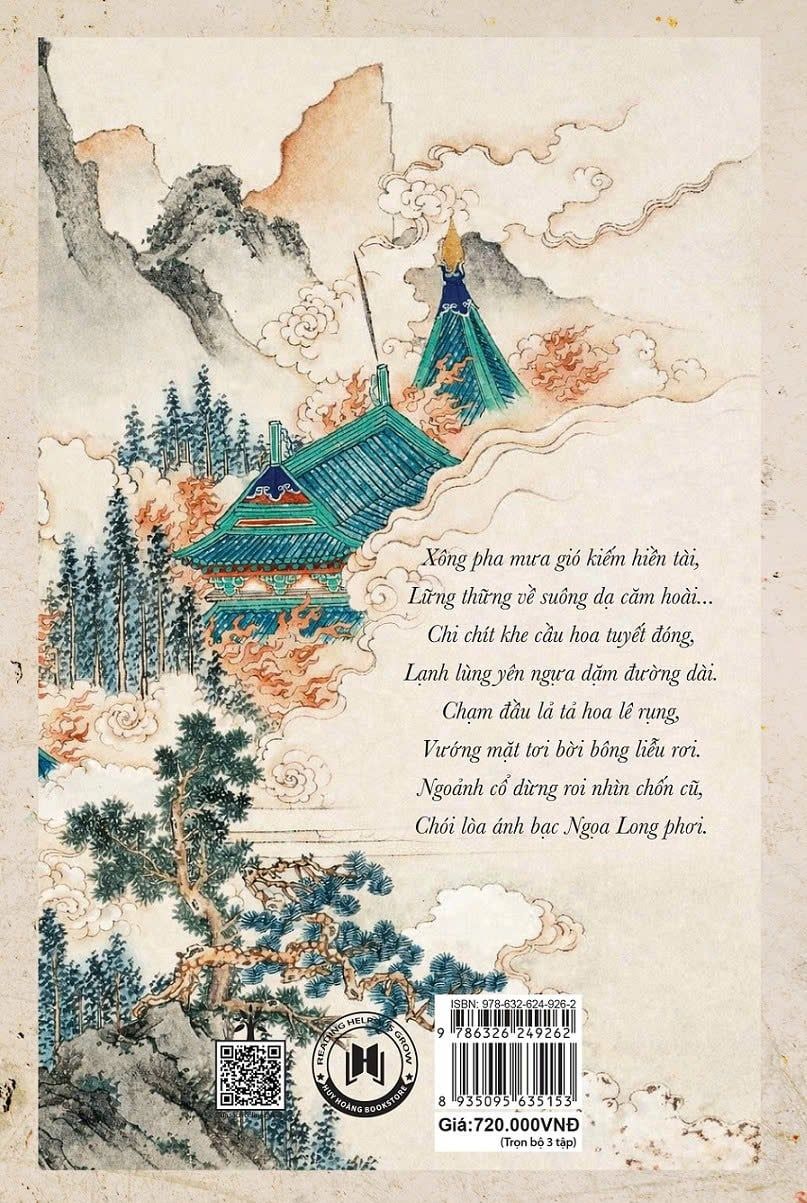 Xông pha mưa gió kiếm hiền tài,
Lững thững về suông dạ căm hoài...
Chi chít khe cầu hoa tuyết đóng,
Lạnh lùng yên ngựa dặm đường dài.
Chạm đầu lả tả hoa lê rụng,
Vướng mặt tơi bời bông liễu rơi.
Ngoảnh cổ dừng roi nhìn chốn cũ,
Chói lòa ánh bạc Ngọa Long phơi.
READING HELPS US GROW
HUY HOÀNG BOOKSTORE
ISBN: 978-632-624-926-2
9 786326 249262
8 935095 635153
Giá:720.000VNĐ
(Trọn bộ 3 tập)